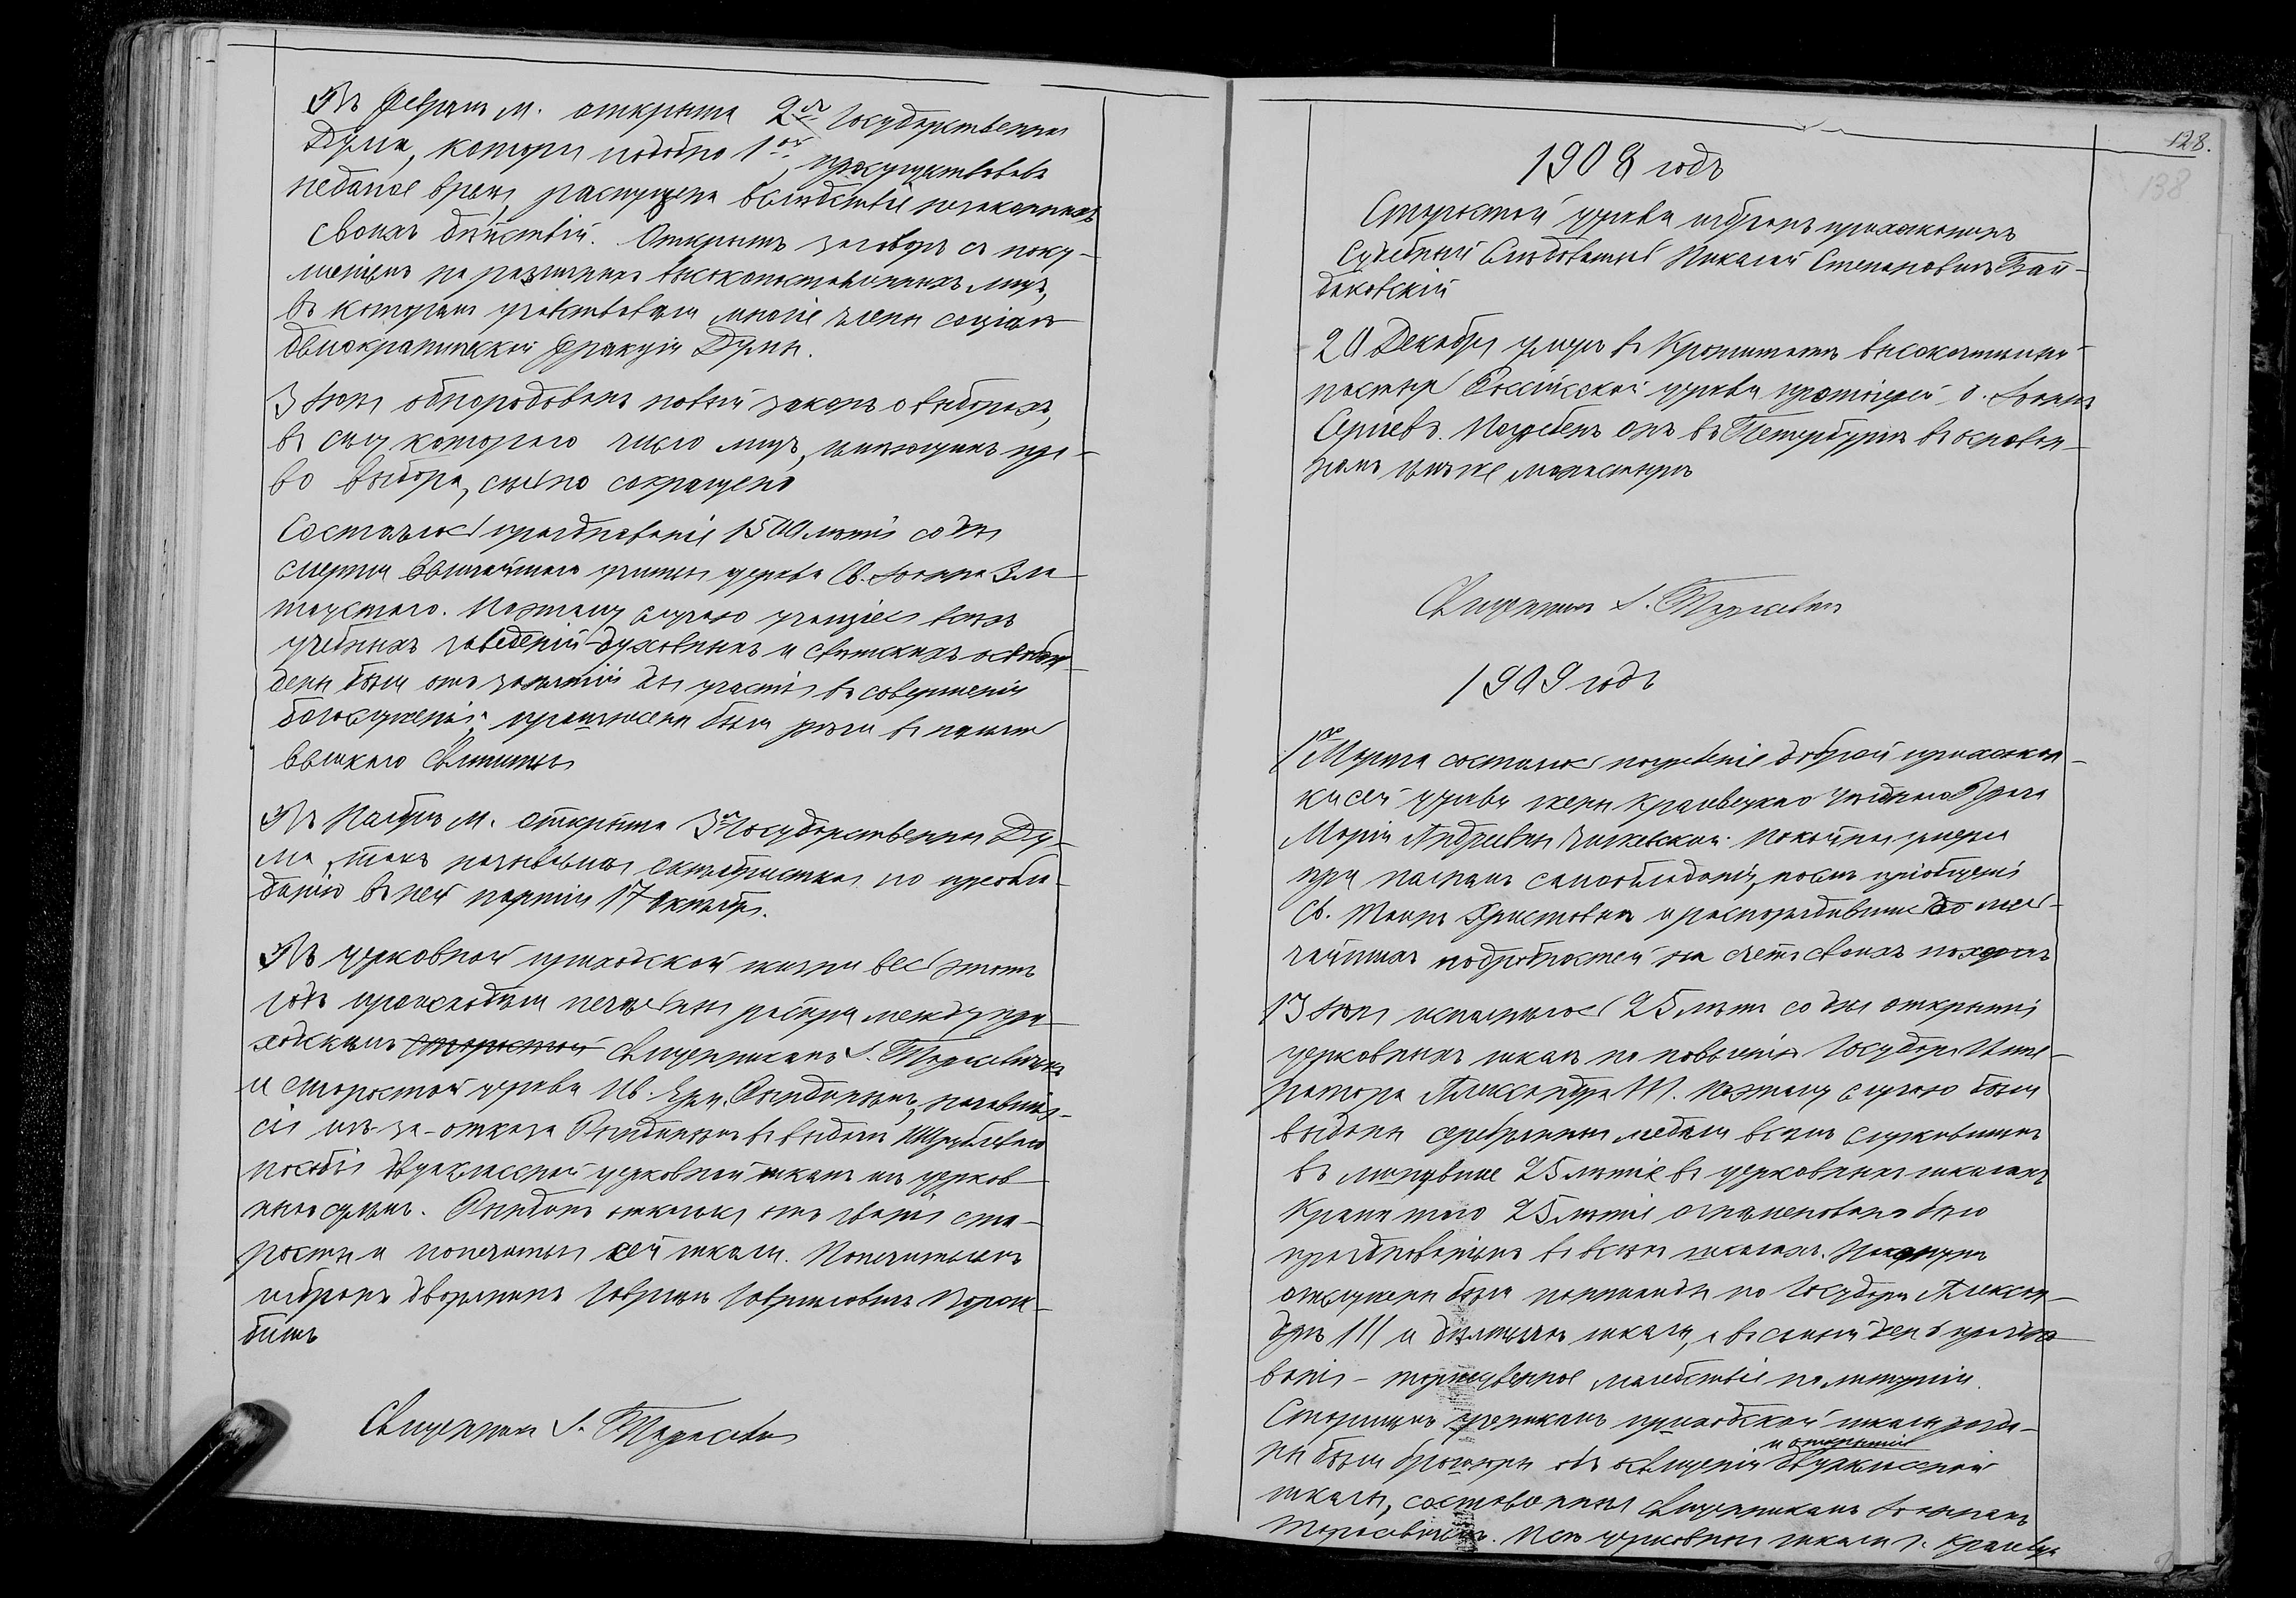 Въ Февралѣ м. открыта 2ая Государственная
Дума, которая подобно 1ой, просуществовавъ
недолгое время, распущена вслѣдствіе незаконныхъ
своихъ дѣйствій. Открытъ заговоръ съ поку-
шеніемъ на различныхъ высокопоставленныхъ лицъ,
въ которомъ участвовали многіе члены соціалъ
демократической фракціи Думы.
3 Іюня обнародованъ новый законъ о выборахъ,
въ силу котораго число лицъ, имѣющихъ пра-
во выбора, сильно сокращено
Состоялось празднованіе 1500 лѣтія со дня
смерти величайшаго учителя церкви Св. Іоанна Зла
тоустаго. По этому случаю учащіеся всѣхъ
учебныхъ заведеній духовныхъ и свѣтскихъ освобож
дены были отъ занятій для участія въ совершеніи
богослуженія, произнесены были рѣчи въ память
великаго Святителя
Въ Ноябрѣ м. открыта 3я Государственная Ду-
ма, такъ называемая октябристская по преобла-
данію въ ней партіи 17 Октября.
Въ церковной приходской жизни весь этотъ
годъ происходили печальныя распри между при-
ходскимъ старостой священникомъ І. Тарасевичемъ
и старостой церкви Ив. начавшія-
ся изъ-за отказа въ выдачѣ рублеваго
пособія двухклассной церковной школѣ изъ церков
ныхъ суммъ. отказался отъ званія ста-
росты и попечителя сей школы. Попечителемъ
избранъ дворянинъ Гавріилъ Гавриловичъ
Священникъ І. Тарасевичъ
128.
138
1908 годъ
Старостой церкви избранъ прихожанинъ
Судебный Слѣдователь Николай Степановичъ Бай-
даковскій
20 Декабря умеръ въ Кронштатѣ высокочтимый
пастырь Россійской церкви протоіерей о. Іоаннъ
Сергіевъ. Погребенъ онъ въ Петербургѣ въ основан-
номъ имъ же монастырѣ
Священникъ І. Тарасевичъ
1909 годъ
1го Марта состоялось погребеніе доброй прихожан-
ки сей церкви жены Кролевецкаго Уѣзднаго Врача
Маріи Андреевны Покойная умерла
при полномъ самообладаніи, послѣ пріобщенія
Св. Таинъ Христовыхъ и распорядившись до мель-
чайшихъ подробностей на счетъ своихъ похоронъ
13 Іюня исполнилось 25 лѣтъ со дня открытія
церковныхъ школъ по повелѣнію Государя Импе-
ратора Александра III. По этому случаю были
выданы серебрянныя медали всѣмъ служившимъ
въ минувшее 25 лѣтіе въ церковныхъ школахъ
Кромѣ того 25 лѣтіе ознаменовано было
празднованіемъ въ всѣхъ школахъ. Наканунѣ
отслужены были панихиды по Государѣ Алексан-
дрѣ III и дѣятеляхъ школы, а въ самый день праздно
ванія - торжественное молебствіе по литургіи.
Старшимъ ученикамъ приходской школы розда-
ны были брошюры объ освященіи и открытіи двухклассной
школы, составленныя священникомъ Іоанномъ
Тарасевичемъ. Всѣ церковныя школы г. Кролевца